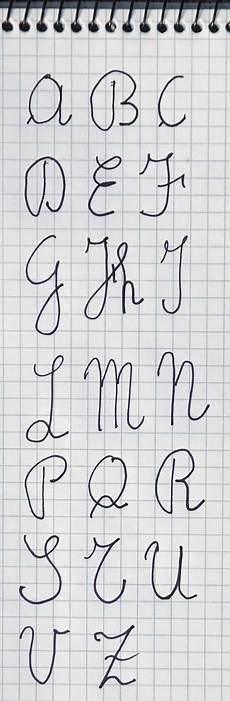 A B C
D E F
G H I
L M N
P Q R
S T U
V Z